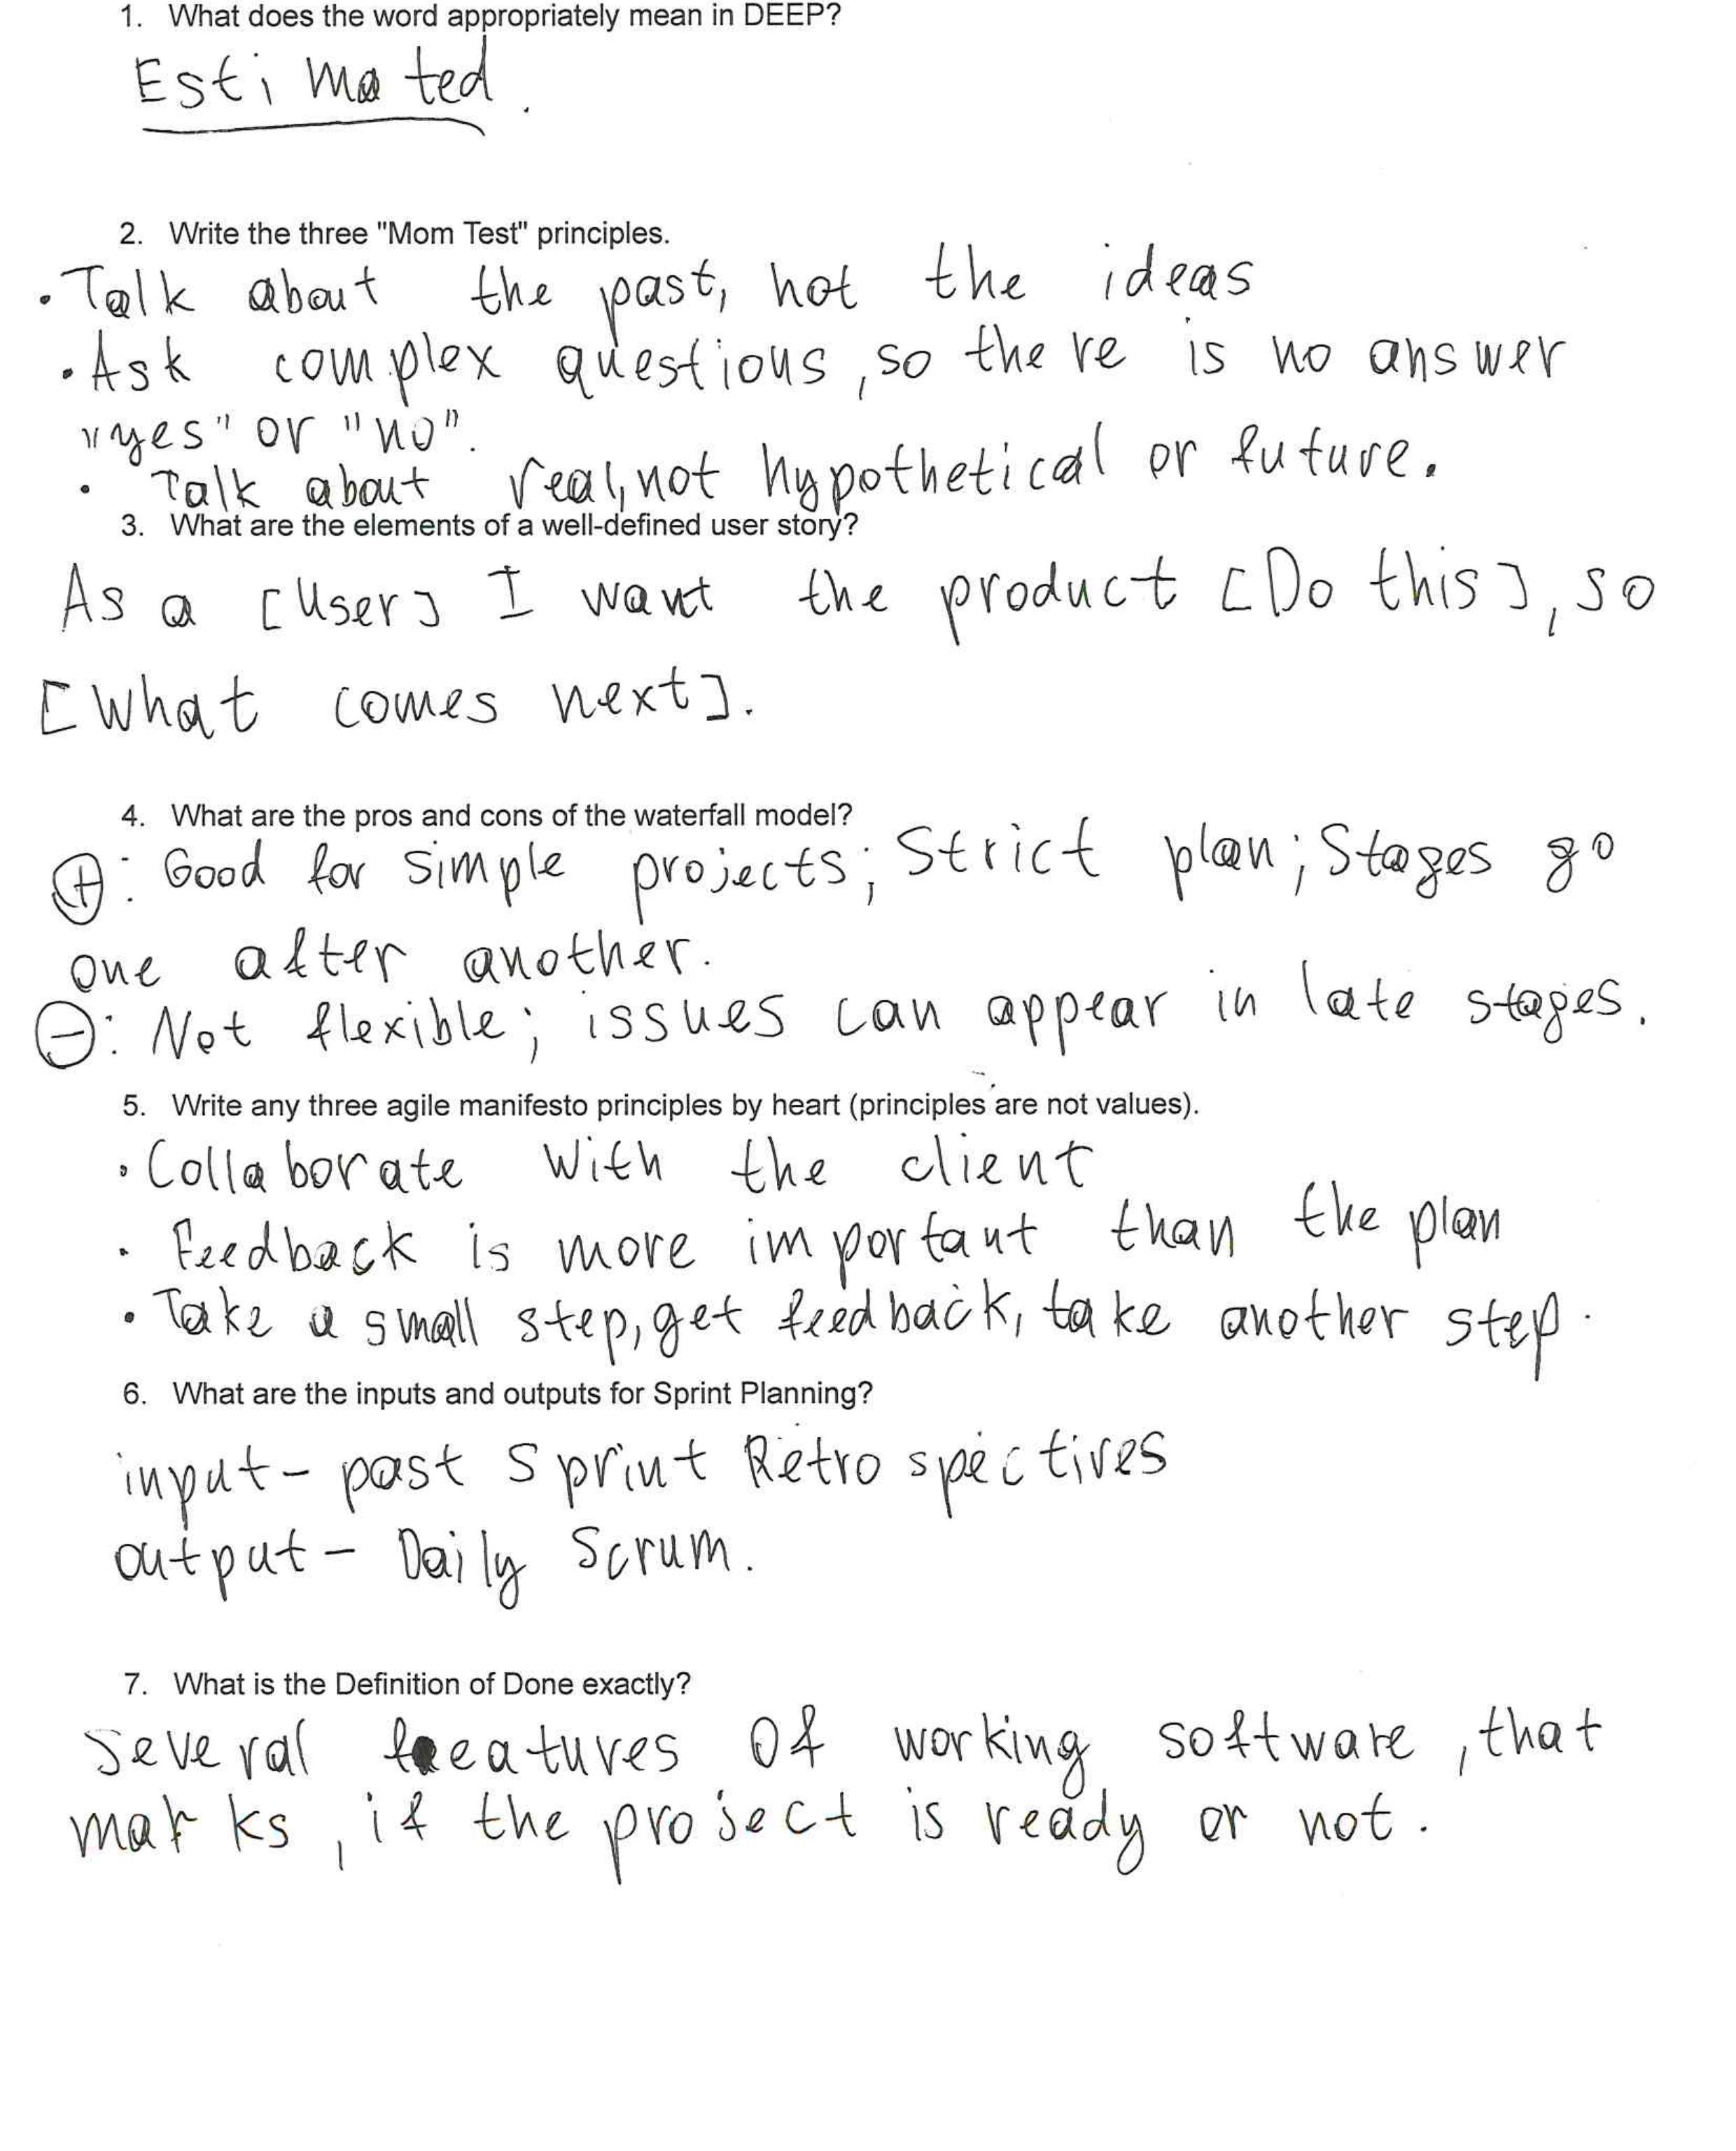 1. What does the word appropriately mean in DEEP?
Estimated.
2. Write the three "Mom Test" principles.
• Talk about the past, not the ideas
• Ask complex questions, so there is no answer
"yes" or "no".
• Talk about real, not hypothetical or future.
3. What are the elements of a well-defined user story?
As a [User] I want the product [Do this], so
[What comes next].
4. What are the pros and cons of the waterfall model?
+: Good for simple projects; Strict plan; Stages go
one after another.
-: Not flexible; issues can appear in late stages.
5. Write any three agile manifesto principles by heart (principles are not values).
• Collaborate with the client
• Feedback is more important than the plan
• Take a small step, get feedback, take another step.
6. What are the inputs and outputs for Sprint Planning?
input - past Sprint Retrospectives
output - Daily Scrum.
7. What is the Definition of Done exactly?
Several features of working software, that
marks, if the project is ready or not.